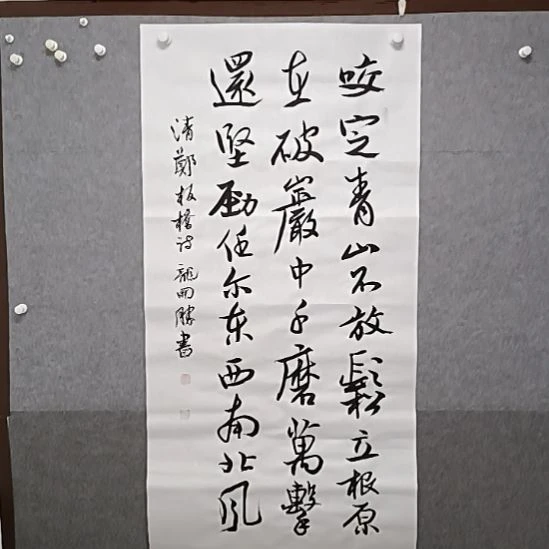 咬定青山不放鬆立根原
在破巖中千磨萬擊
還堅勁任尔东西南北风
清鄭板橋诗龍田勝書